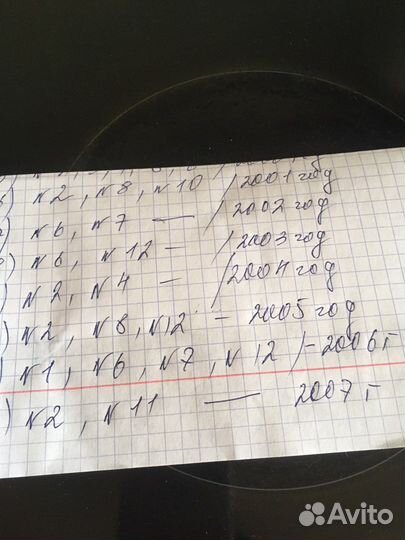 №2, №8, №10 / 2001 год
№6, №7 — / 2002 год
) №6, №12 — / 2003 год
) №2, №4 — / 2004 год
) №2, №8, №12 — 2005 год
) №1, №6, №7, №12 / – 2006 г
) №2, №11 — 2007 г
Avito